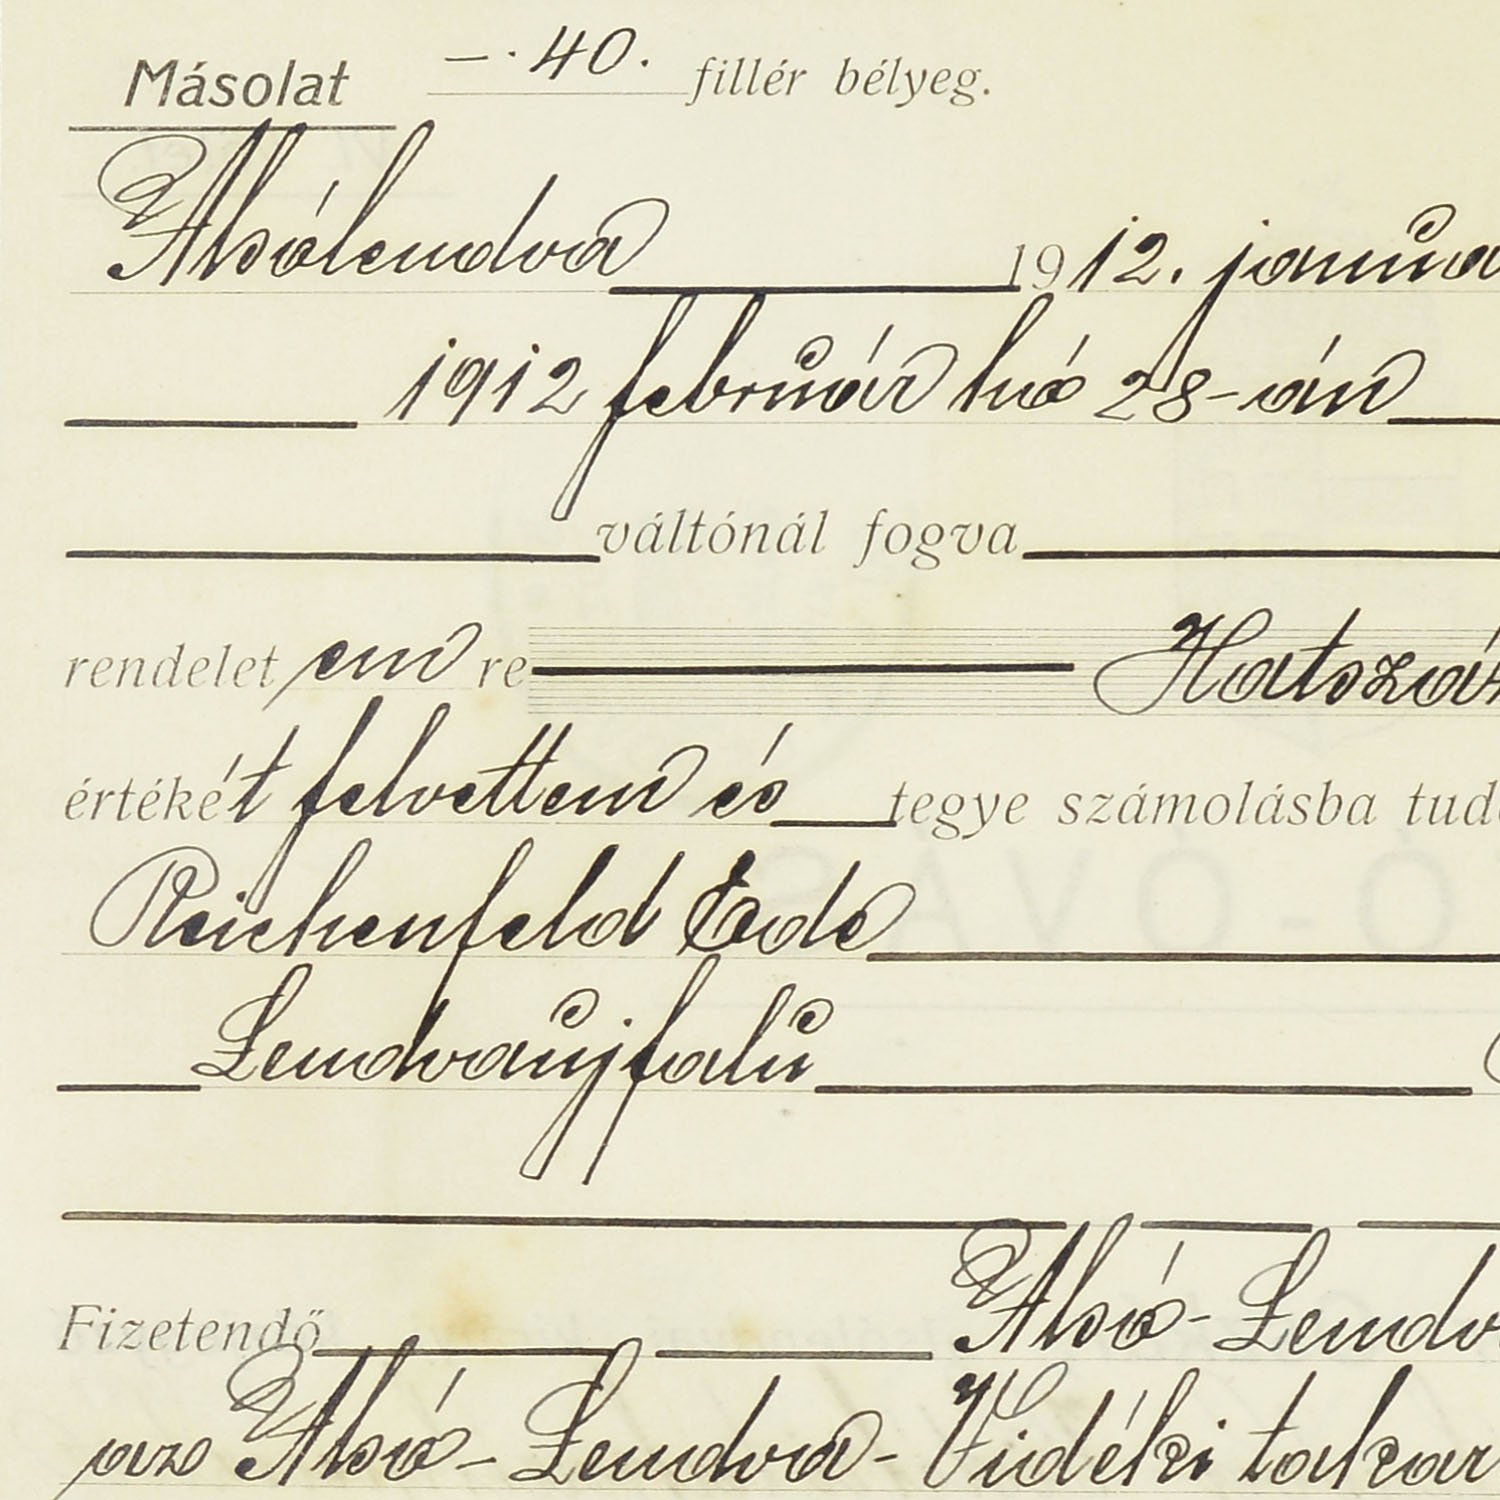 Másolat —.40. fillér bélyeg.
Alsólendva 1912. janua
1912 február hó 28-án
váltónál fogva
rendelet em re Hatszáz
értékét felvettem és tegye számolásba tud
Reichenfeld Ede
Lendvaujfalu
Fizetendő Alsó-Lendv
az Alsó-Lendva-Vidéki takar